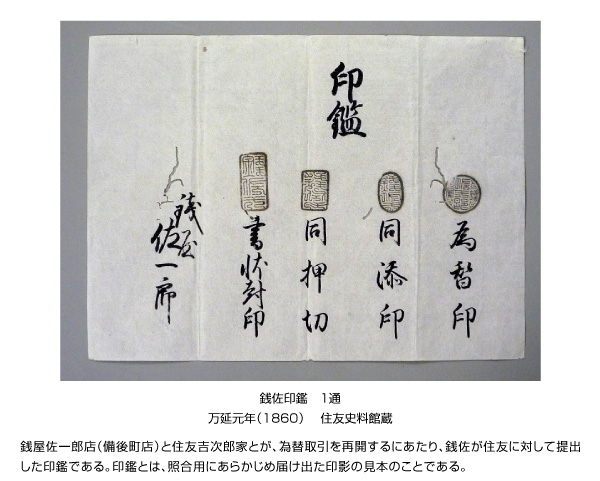 印鑑
為替印
同添印
同押切
書状封印
銭屋
佐一郎
銭佐印鑑　1通
万延元年（1860）　住友史料館蔵
銭屋佐一郎店（備後町店）と住友吉次郎家とが、為替取引を再開するにあたり、銭佐が住友に対して提出
した印鑑である。印鑑とは、照合用にあらかじめ届け出た印影の見本のことである。